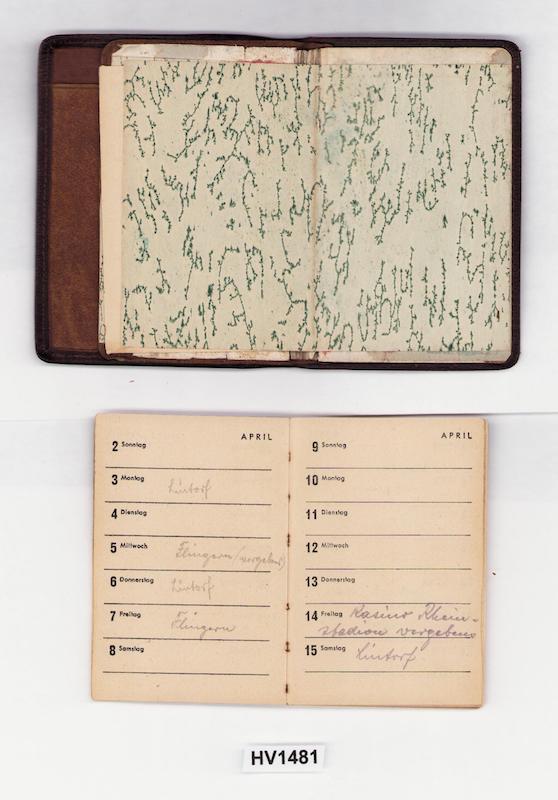 APRIL
2 Sonntag
3 Montag Lintorf
4 Dienstag
5 Mittwoch Flingern (vergebens)
6 Donnerstag Lintorf
7 Freitag Flingern
8 Samstag
APRIL
9 Sonntag
10 Montag
11 Dienstag
12 Mittwoch
13 Donnerstag
14 Freitag Kasino Rhein-
stadion vergebens
15 Samstag Lintorf
HV1481